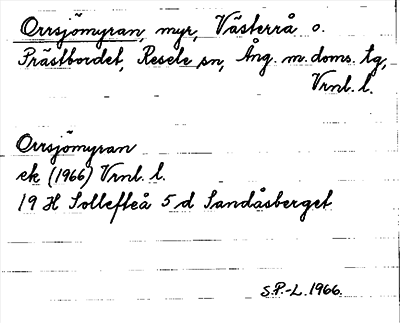 Orrsjömyran, myr, Västerrå o.
Prästbordet, Resele sn, Ång. m. doms. tg,
Vrnl. l.
Orrsjömyran
ek (1966) Vrnl. l.
19 H Sollefteå 5 d Sandåsberget
S.P.-L. 1966.